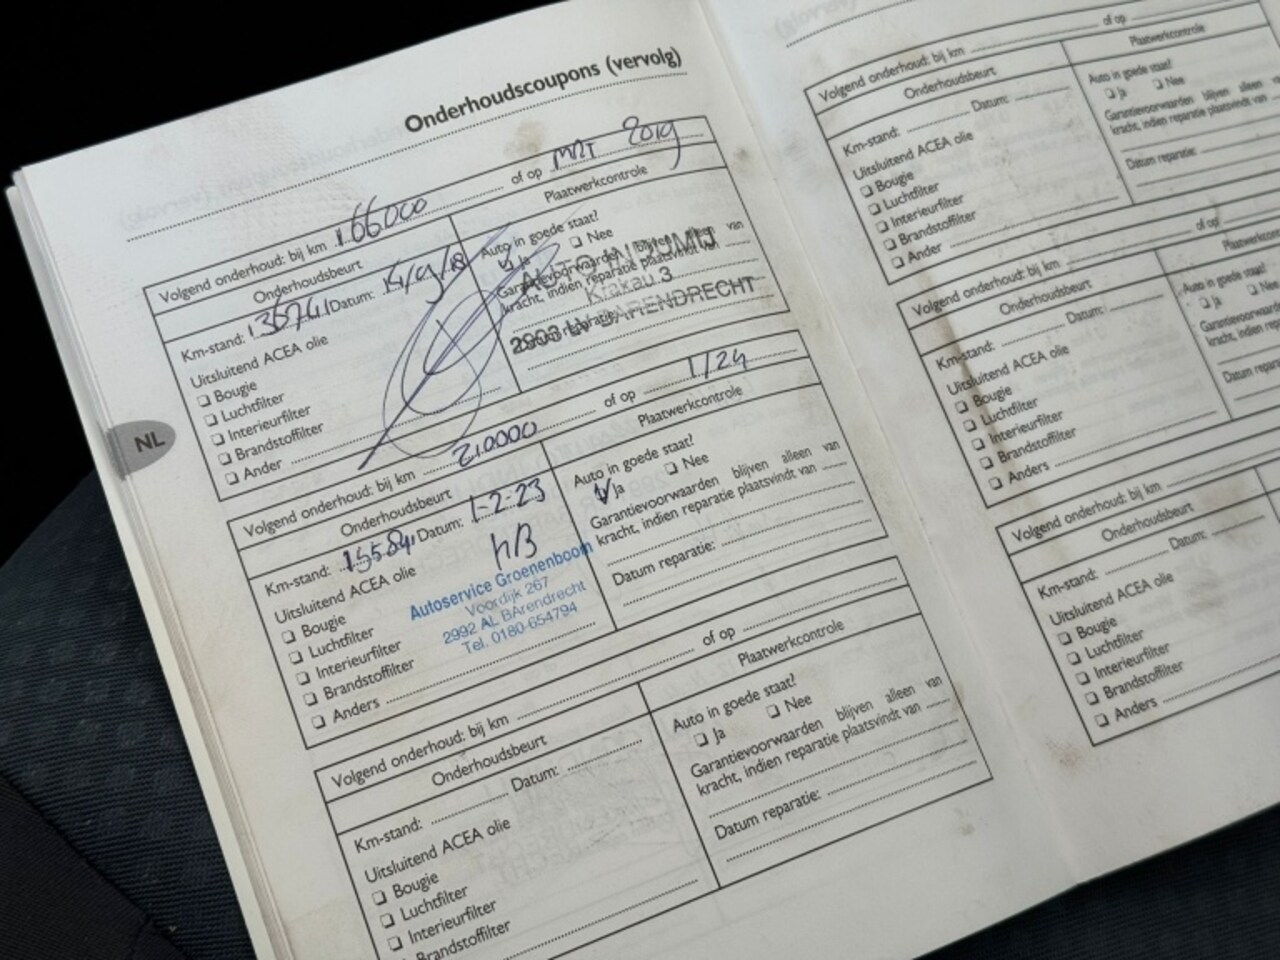 Onderhoudscoupons (vervolg)
Volgend onderhoud: bij km 166000 of op MRT 2019
Onderhoudsbeurt
Plaatwerkcontrole
Km-stand: 135741 Datum: 14/9/18
Uitsluitend ACEA olie
Bougie
Luchtfilter
Interieurfilter
Brandstoffilter
Ander
Auto in goede staat?
Ja Nee
Garantievoorwaarden blijven alleen van
kracht, indien reparatie plaatsvindt van
Krakau 3
BARENDRECHT
Volgend onderhoud: bij km 210000 of op 1/24
Onderhoudsbeurt
Plaatwerkcontrole
Km-stand: Datum: 1-2-23
Uitsluitend ACEA olie
Bougie
Luchtfilter
Interieurfilter
Brandstoffilter
Anders
Autoservice Groenenboom
Voordijk 267
2992 AL BArendrecht
Tel. 0180-654794
Auto in goede staat?
Ja Nee
Garantievoorwaarden blijven alleen van
kracht, indien reparatie plaatsvindt van
Datum reparatie:
Volgend onderhoud: bij km of op
Onderhoudsbeurt
Plaatwerkcontrole
Km-stand: Datum:
Uitsluitend ACEA olie
Bougie
Luchtfilter
Interieurfilter
Brandstoffilter
Auto in goede staat?
Ja Nee
Garantievoorwaarden blijven alleen van
kracht, indien reparatie plaatsvindt van
Datum reparatie:
NL
Volgend onderhoud: bij km of op
Onderhoudsbeurt
Plaatwerkcontrole
Km-stand: Datum:
Uitsluitend ACEA olie
Bougie
Luchtfilter
Interieurfilter
Brandstoffilter
Ander
Auto in goede staat?
Ja Nee
Garantievoorwaarden blijven alleen
kracht, indien reparatie plaatsvindt
Datum reparatie:
Volgend onderhoud: bij km of op
Onderhoudsbeurt
Km-stand: Datum:
Uitsluitend ACEA olie
Bougie
Luchtfilter
Interieurfilter
Brandstoffilter
Anders
Auto in goede staat?
Ja Nee
Volgend onderhoud: bij km
Onderhoudsbeurt
Km-stand: Datum:
Uitsluitend ACEA olie
Bougie
Luchtfilter
Interieurfilter
Brandstoffilter
Anders